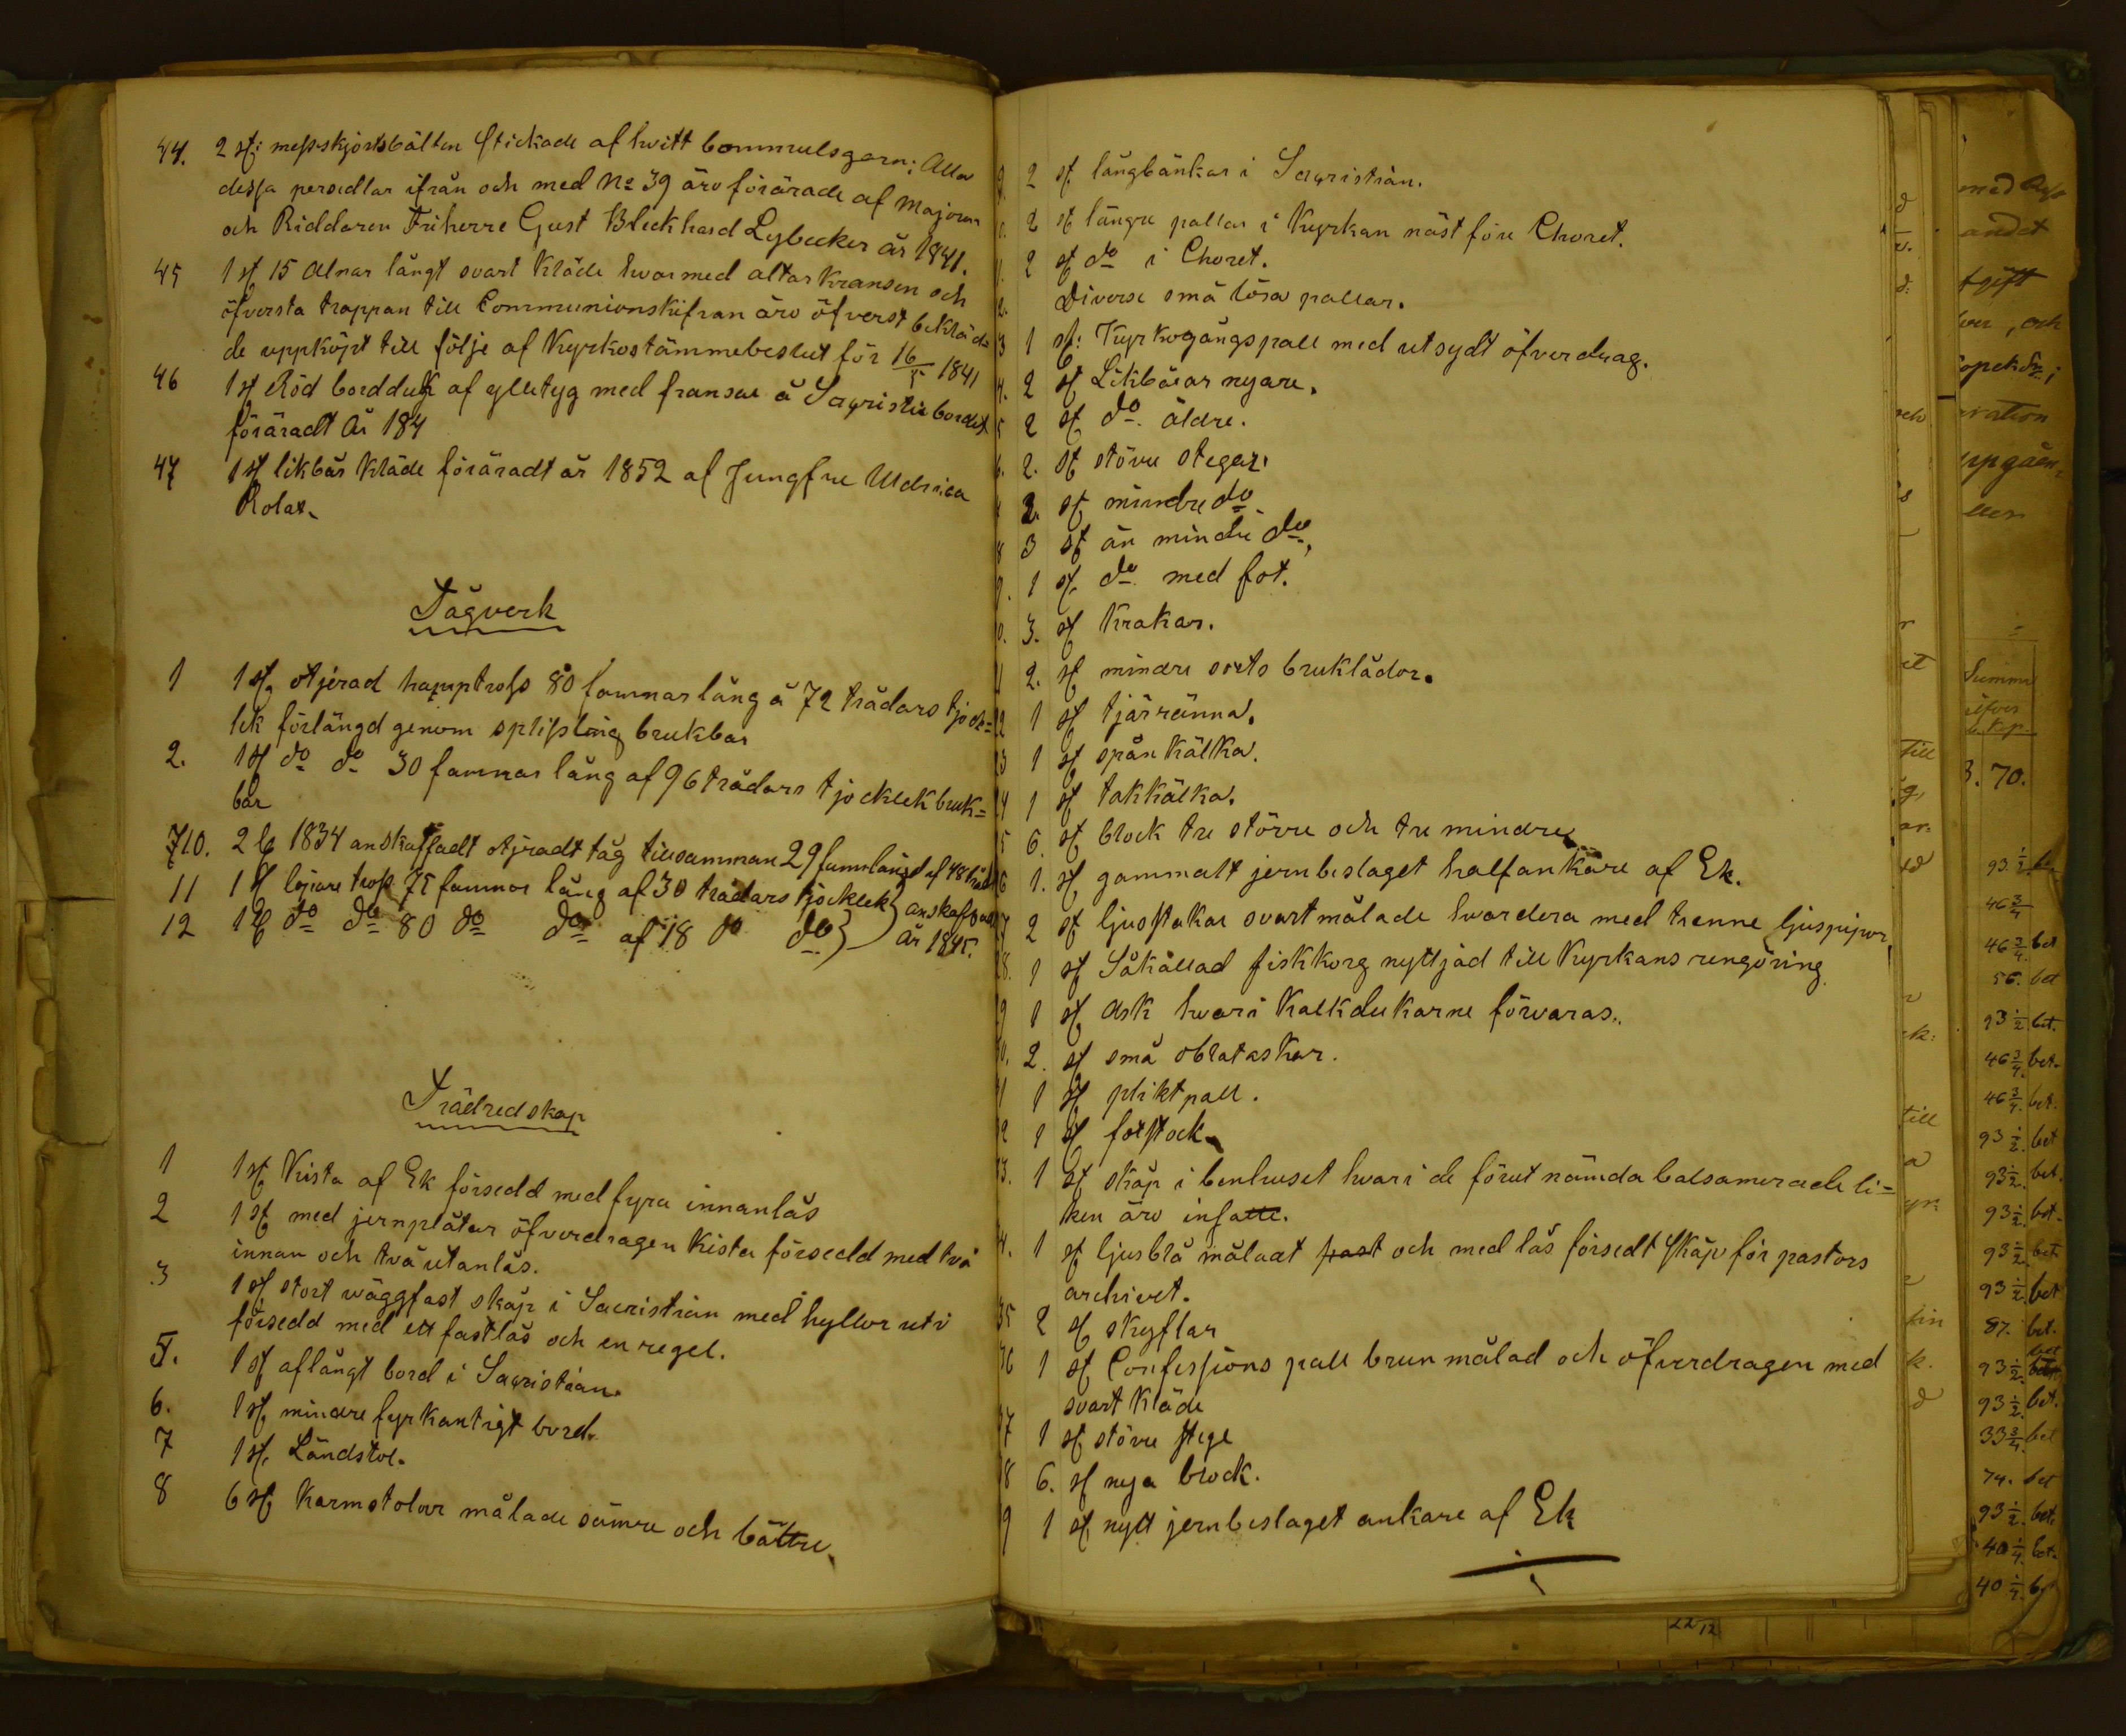 44. 2 st: messkjortsbälten stickade af hvitt bommulsgarn; Alla
dessa persedlar ifrån och med No 39 äro förärade af Majoren
och Riddaren Friherre Gust Bleckhard Lybecker år 1841.
45 1 st 15 alnar långt svart kläde hvarmed altarkransen och
öfversta trappan till Communionskifvan äro öfverst beklädde
de uppköpt till följe af Kyrkostämmebeslut för 16/5 1841
46 1 st Röd bordduk af ylletyg med fransar å Sacristie bordet
föräradt År 184
47 1 st likbår kläde föräradt år 1852 af Jungfru Uldrica
Rolax.
Tågverk
1 1 st otjerad hamptross 80 famnar lång à 72 trådars tjock=
lek förlängd genom splissling brukbar
2. 1 st do do 30 famnar lång af 96 trådars tjocklek bruk=
bar
710. 2 st 1834 anskaffadt otjradt tåg tillsamman 29 famn längd af 48 tråd
11 1 st lejare tross 75 famnar lång af 30 trådars tjocklek } anskaffad
12 1 st do do 80 do do af 18 do do } år 1845.
Trädredskap
1 1 st Kista af Ek försedd med fyra innanlås
2 1 st med jernplåtar öfverdragen kista försedd med två
innan och två utanlås.
3 1 st stort wäggfast skåp i Sacristian med hyllor uti
försedd med ett fastlås och en regel.
5. 1 st aflångt bord i Sacristian.
6. 1 st mindre fyrkantigt bord.
7 1 st. Ländstol.
8 6 st Karmstolar målade sämre och bättre.
9. 2 st långbänkar i Sacristian.
0. 2 st längre pallar i Kyrkan näst före Choret.
1. 2 st do i Choret.
2. Diverse små lösa pallar.
3 1 st: Kyrkogångspall med utsydt öfverdrag.
4. 2 st Likbårar nyare.
5 2 st do äldre.
6. 2. st större stegar.
2. st mindre do
8 3 st än mindre do,
9. 1 st. do med fot.
0. 3. st Krakar.
1 2. st mindre sorts bruklådor.
2 1 st tjärränna.
3 1 st spånkälka.
4 1 st takkälka.
5 6. st block tre större och tre mindre
6 1. st gammalt jernbeslaget halfankare af Ek.
7 2 st ljusstakar svartmålade hvardera med trenne ljuspipor
28. 1 st Såkallad fiskkorg nyttjad till Kyrkans rengöring
9 1 st Ask hvari Kalkdukarne förvaras.
0. 2. st små oblataskar.
1 1 st pliktpall.
2 1 st fotstock
3. 1 st skåp i benhuset hvari de förut nämda balsamerade li=
ken äro infatte.
4. 1 st ljusblå målaat fast och med lås försedt skåp för pastors
archivet.
35 2 st skyflar
36 1 st Confessions pall brun målad och öfverdragen med
svart kläde
37 1 st större stege
8 6. st nya block.
9 1 st nytt jernbeslaget ankare af Ek
andet
och
Summa
70.
93 1/2
46 3/4
46 3/4 bet
56. bet
93 1/2 bet.
46 3/4 bet.
46 3/4 bet.
93 1/2 bet
93 1/2 bet.
93 1/2 bet.
93 1/2 bet
93 1/2 bet
87. bet.
93 1/2 bet
93 1/2 bet.
33 3/4 bet
74. bet
93 1/2 bet.
40 1/4 bet.
40 1/4